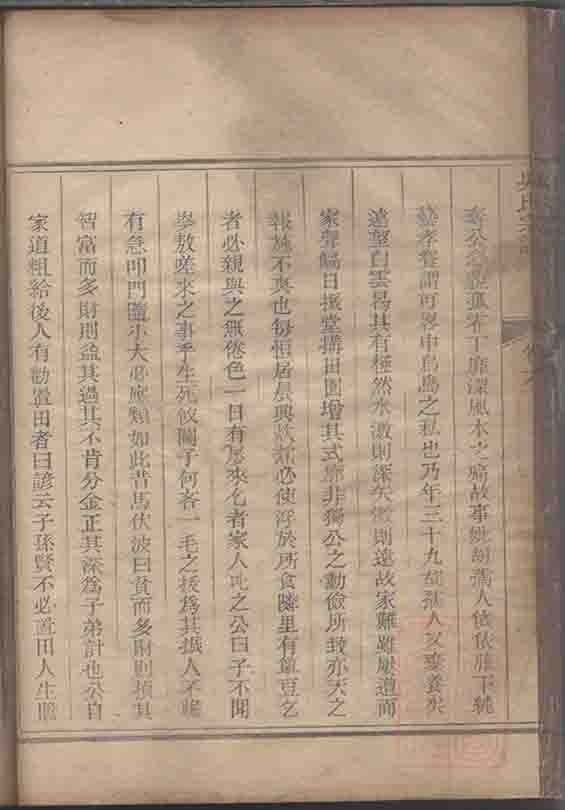 吳氏宗譜
卷六
壽公公 下靡深風木之痛故事 人依依膝下純
孝養謂可畧申烏鳥之私也乃年三十九 人又棄養矣
遠望白雲曷其有極然水激則深矢激則遠故家難雖屢遭而
家聲 日振堂搆田園增其式廓非獨公之勤儉所致亦天之
報施不爽也每恒居晨興 必使浮於所食隣里有簞豆乞
者必親與之無倦色一日有屢來乞者家人叱之公曰子不聞
黔敖嗟來之事乎生死攸關予何吝一毛之拔爲其 人不
有急叩門隨小大必應類如此昔馬伏波曰貧而多財則損其
智富而多財則益其過其不肯分金正其深為子弟計也公自
家道粗給後人有勸置田者曰諺云子孫賢不必置田人生